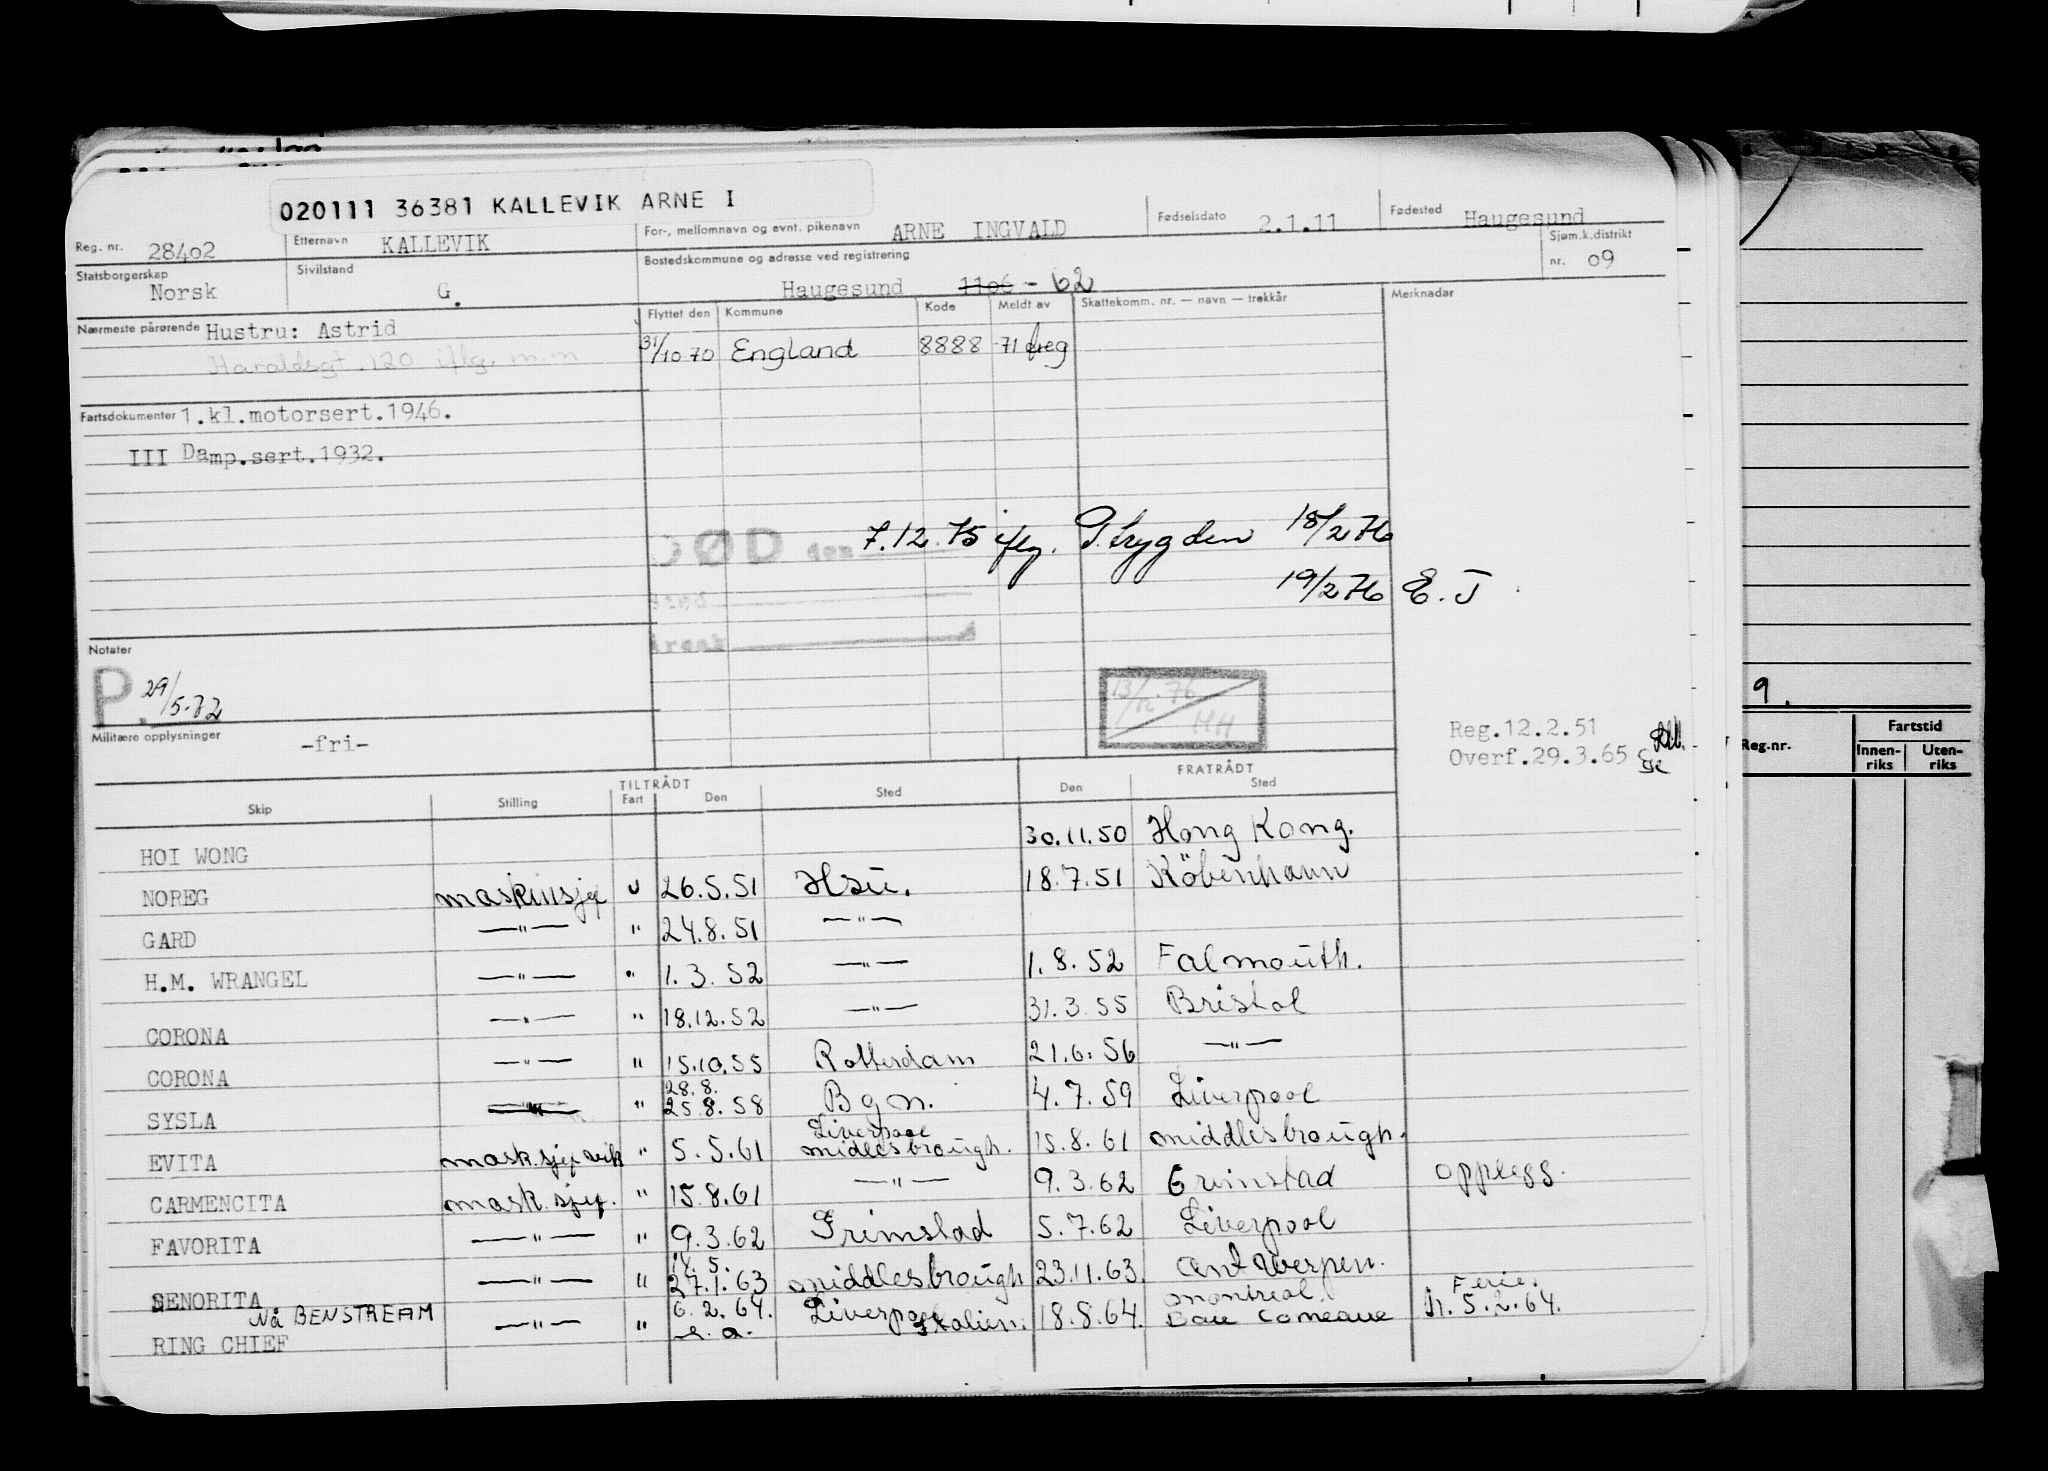 020111 36381 KALLEVIK ARNE I
Reg. nr. 28402 Etternavn KALLEVIK For-, mellomnavn og evnt. pikenavn ARNE INGVALD Fødselsdato 2.1.11 Fødested Haugesund
Statsborgerskap Norsk Sivilstand G. Bostedskommune og adresse ved registrering Haugesund 1106 - 62 Sjøm.k.distrikt nr. 09
Nærmeste pårørende Hustru: Astrid
Haraldsgt. 120 iflg. m.m
Flyttet den Kommune Kode Meldt av Skattekomm. nr. — navn — trekkår Merknadar
31/10 70 England 8888 71 freg
Fartsdokumenter 1.kl.motorsert.1946.
III Damp.sert.1932.
DØD den 7.12.75 iflg. P.trygden 18/2 76
19/2 76 E. J
Sted
Notater
P. 29/5-72
13/12.76
HH
Militære opplysninger -fri-
Reg.12.2.51
Overf.29.3.65
TILTRÅDT FRATRÅDT
Skip Stilling Fart Den Sted Den Sted
HOI WONG 30.11.50 Hong Kong.
NOREG maskinsjef U 26.5.51 Hsu. 18.7.51 Köbenhavn
GARD —"— " 24.8.51 —"—
H.M. WRANGEL —"— " 1.3.52 —"— 1.8.52 Falmouth.
CORONA —"— " 18.12.52 —"— 31.3.55 Bristol
CORONA —"— " 15.10.55 Rotterdam 21.6.56 —"—
28.8.
SYSLA —"— " 25.8.58 Bgn. 4.7.59 Liverpool
Liverpool
EVITA mask.sjef vik " 5.5.61 midlesbrough. 15.8.61 middlesbrough.
CARMENCITA mask.sjef. " 15.8.61 —"— 9.3.62 Grimstad opplegg.
FAVORITA —"— " 9.3.62 Grimstad 5.7.62 Liverpool
14.5.
SENORITA —"— " 27.1.63 middlesbrough 23.11.63. Antwerpen. Ferie.
Nå BENSTREAM 6.2.64. montreal. h. 5.2.64.
RING CHIEF —"— " Liverpool Italien. 18.8.64. Baie Comeaue
9.
Reg.nr. Fartstid
Innen-riks Uten-riks